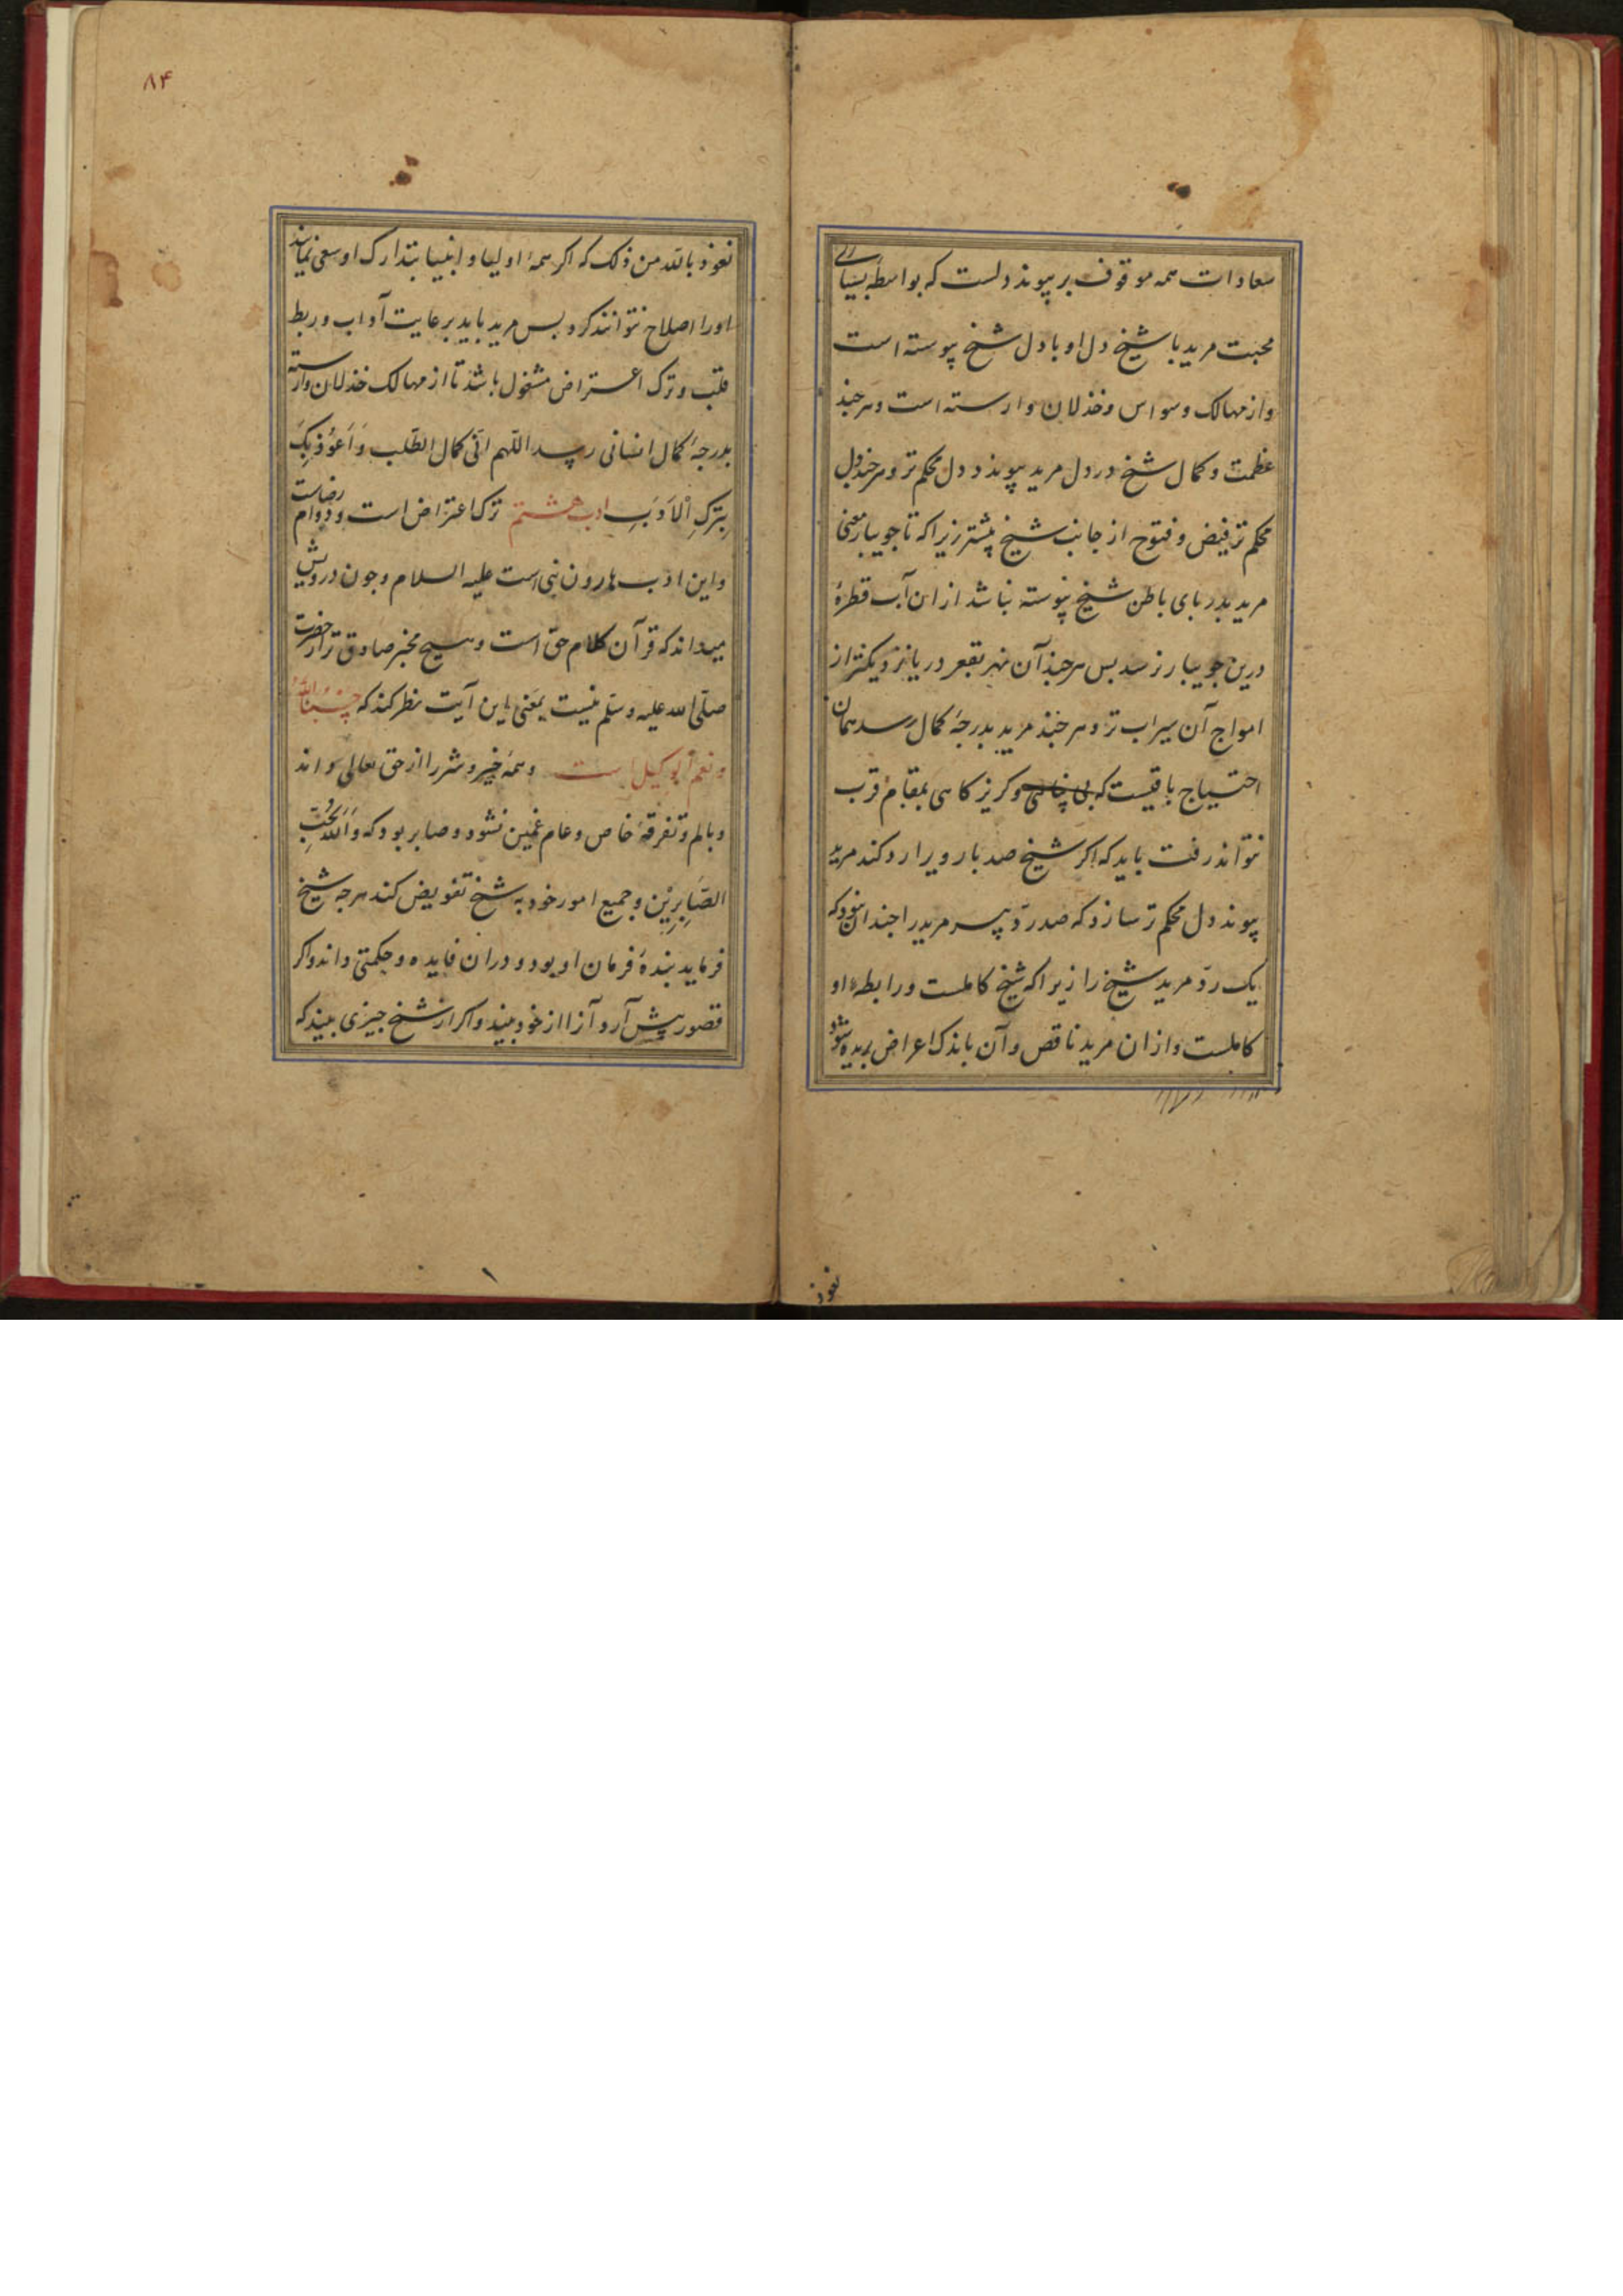 سعادات همه موقوف بر پیوند دلست که بواسطه بسیاری
محبت مرید با شیخ دل او با دل شیخ پیوسته است
و از مهالک وسواس و خذلان وارسته است و هر جند
عظمت و کمال شیخ در دل مرید پیوند دل محکم تر و هر جند دل
محکم تر فیض و فتوح از جانب شیخ بیشتر زیرا که تا جویبار معنی
مرید بدریای باطن شیخ پیوسته نباشد از ان آب قطرهٔ
درین جویبار نرسد بس هر جند آن نهر بقعر دریا نزدیکتر از
امواج آن سیراب تر و هر جند مرید بدرجهٔ کمال رسد همان
احتیاج باقیست که بی وکریزکاهی بمقام قرب
نتواند رفت باید که اکر شیخ صد بار ویرا رد کند مرید
پیوند دل محکم تر سازد که صد رد پیر مرید را جندان نبود که
یک رد مرید شیخ را زیرا که شیخ کاملست و رابطهٔ او
کاملست و از ان مرید ناقص و آن باندک اعراض بریده شود
نعوذ
۸۴
نعوذ بالله من ذلک که اکر همهٔ اولیا و انبیا بتدارک او سعی نمایند
اورا اصلاح نتوانند کرد بس مرید باید برعایت آداب و ربط
قلب و ترک اعتراض مشغول باشد تا از مهالک خذلان وارسته
بدرجهٔ کمال انسانی رسد اللّهم اتنی کمال الطّلب وَاَعُوذُ بِکَ
بِتَرکِ الْاَدَبِ ادب هشتم ترک اعتراض است و دوام رضاست
و این ادب هارون نبی است علیه السلام و جون درویش
میداند که قرآن کلام حق است و هیچ مخبر صادق تر از حضرت
صلّی الله علیه وسلّم نیست بمعنی این آیت نظر کند که حَسْبُنَا اللّٰهُ
ونعم الوکیل است وهمهٔ خیر و شر را از حق تعالی داند
و بالم و تفرقهٔ خاص و عام غمین نشود و صابر بود که وَاللّٰهُ یُحِبُّ
الصَّابِرِیْنَ و جمیع امور خود به شیخ تفویض کند هر جه شیخ
فرماید بندهٔ فرمان او بود و دران فایده و حکمتی داند و اکر
قصور پیش آرد آنرا از خود بیند و اکر از شیخ جیزی بیند که